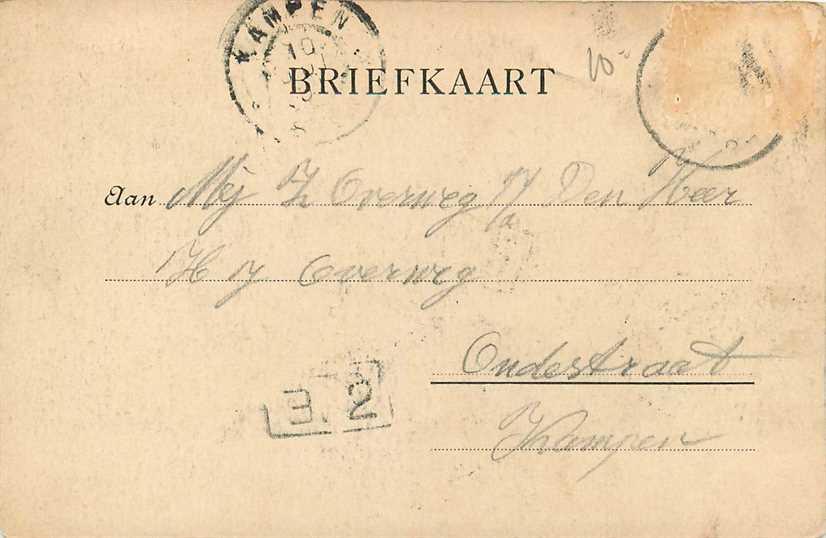 KAMPEN
10
BRIEFKAART
10
Aan Mej Z Overweg p/a Den Heer
H J Overweg
Oudestraat
Kampen
B. 2